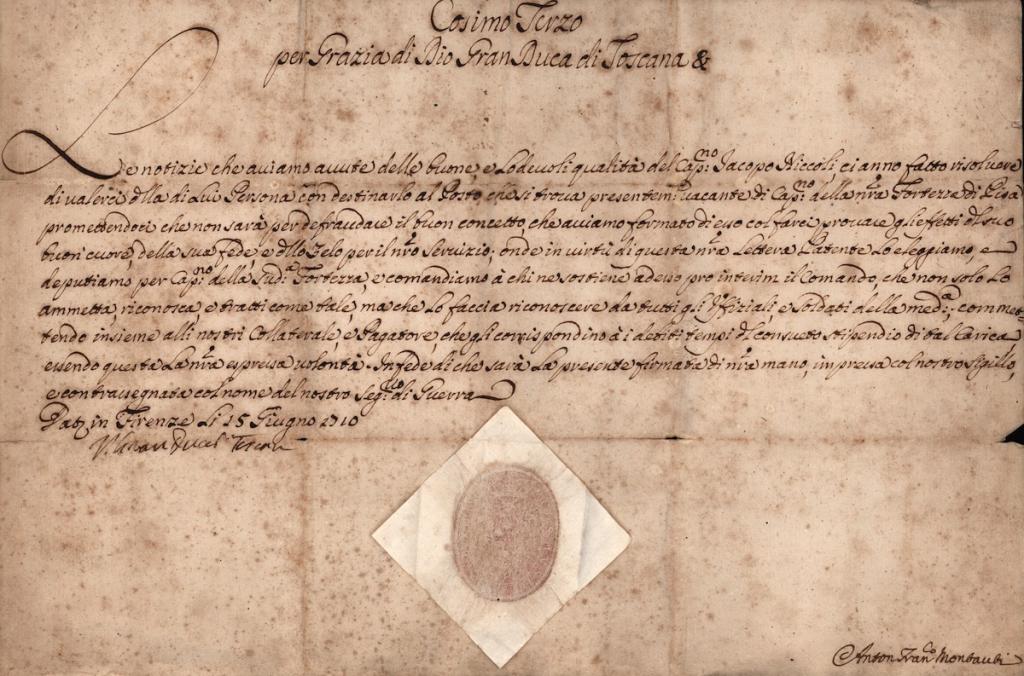 Cosimo Terzo
per Grazia di Dio Gran Duca di Toscana &
Le notizie che aviamo avute delle buone, e Lodevoli qualità del Cap:no Jacopo Niccoli, ci anno fatto risolvere
di valerci della di Lui Persona con destinarlo al Posto che si trova presentem:te vacante di Cap:no della nra Fortezza di Pisa
promettendoci che non sarà per defraudare il buon concetto, che aviamo formato di esso col farci provare gli effetti del suo
buon cuore, della sua fede e dello Zelo per il nro Servizio; onde in virtù di questa nra Lettera Patente Lo eleggiamo, e
deputiamo per Cap:no della Sud:a Fortezza, e comandiamo à chi ne sostiene adesso pro interim il Comando, che non solo Lo
ammetta riconosca e tratti come tale ma che Lo faccia riconoscere da tutti gli Offiziali e Soldati della med:a; commet
tendo insieme alli nostri Collaterale e Pagatore che gli corrispondino à i debiti tempi del consueto stipendio di tal Carica
essendo questa La nra espressa volontà. In fede di che sarà La presente firmata di nra mano, impressa col nostro Sigillo,
e contrassegnata col nome del nostro Seg:rio di Guerra
Dat, in Firenze Li 15 Giugno 1710
Anton Fran:co Montauti